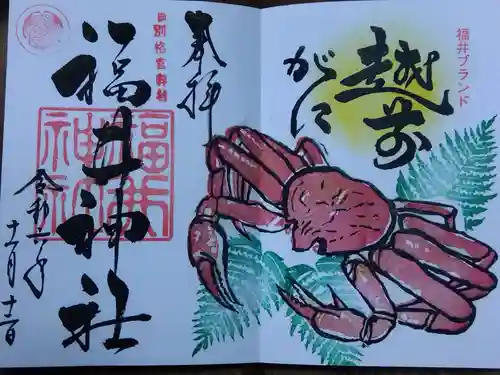 福井ブランド
越前
がに
奉拝
旧別格官幣社
福井神社
福井
神社
令和二年
十一月十二日